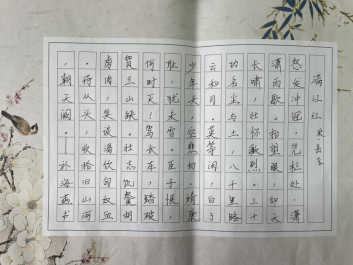 满江红 宋岳飞
怒发冲冠，凭栏处，潇
潇雨歇。抬望眼，仰天
长啸，壮怀激烈。三十
功名尘与土，八千里路
云和月。莫等闲，白了
少年头，空悲切。靖康
耻，犹未雪。臣子恨，
何时灭！驾长车，踏破
贺兰山缺。壮志饥餐胡
虏肉，笑谈渴饮匈奴血
。待从头，收拾旧山河
，朝天阙。——於海燕书